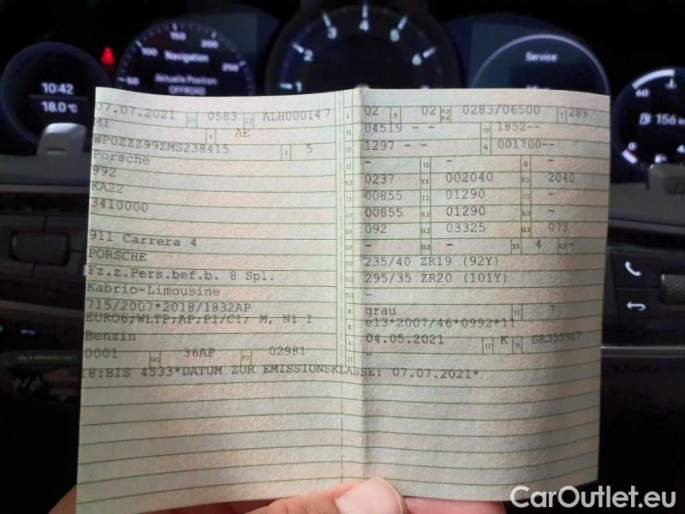 10:42
18.0°C
50
100
150
200
250
Navigation
Aktuelle Position:
OFFROAD
1
2
3
4
5
6
7
Service
156
07.07.2021 0583 ALH000147
M1 AE
WP0ZZZ99ZMS238415 5
Porsche
992
KA22
3410000
911 Carrera 4
PORSCHE
Fz.z.Pers.bef.b. 8 Spl.
Kabrio-Limousine
715/2007*2018/1832AP
EURO6;WLTP;AP;PI/CI; M, N1 I
Benzin
0001 36AP 02981
18:BIS 4533*DATUM ZUR EMISSIONSKLASSE: 07.07.2021*
02 02 0283/06500 289
04519 - - 1852--
1297 - - 001700--
- -
0237 002040 2040
00855 01290 -
00855 01290 -
092 03325 073
- - 4 -
235/40 ZR19 (92Y)
295/35 ZR20 (101Y)
-
grau 7
e13*2007/46*0992*11
04.05.2021 K
-
CarOutlet.eu